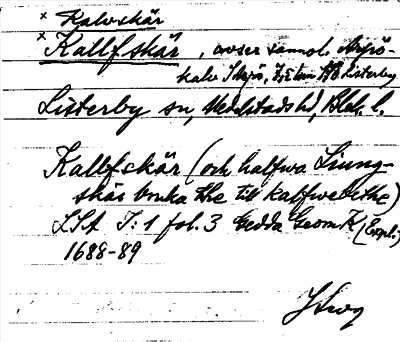 × Kalvskär
× Kallfskär, avser sannol. Arpö-
kalv S Arpö,
Listerby sn, Medelstads hd, Blek. l.
Kallfskär (och halfwa Liung-
skär bruka the till kalfwebethe)
LSA I:1 fol. 3 Gedda Geom K (Expl.)
1688-89